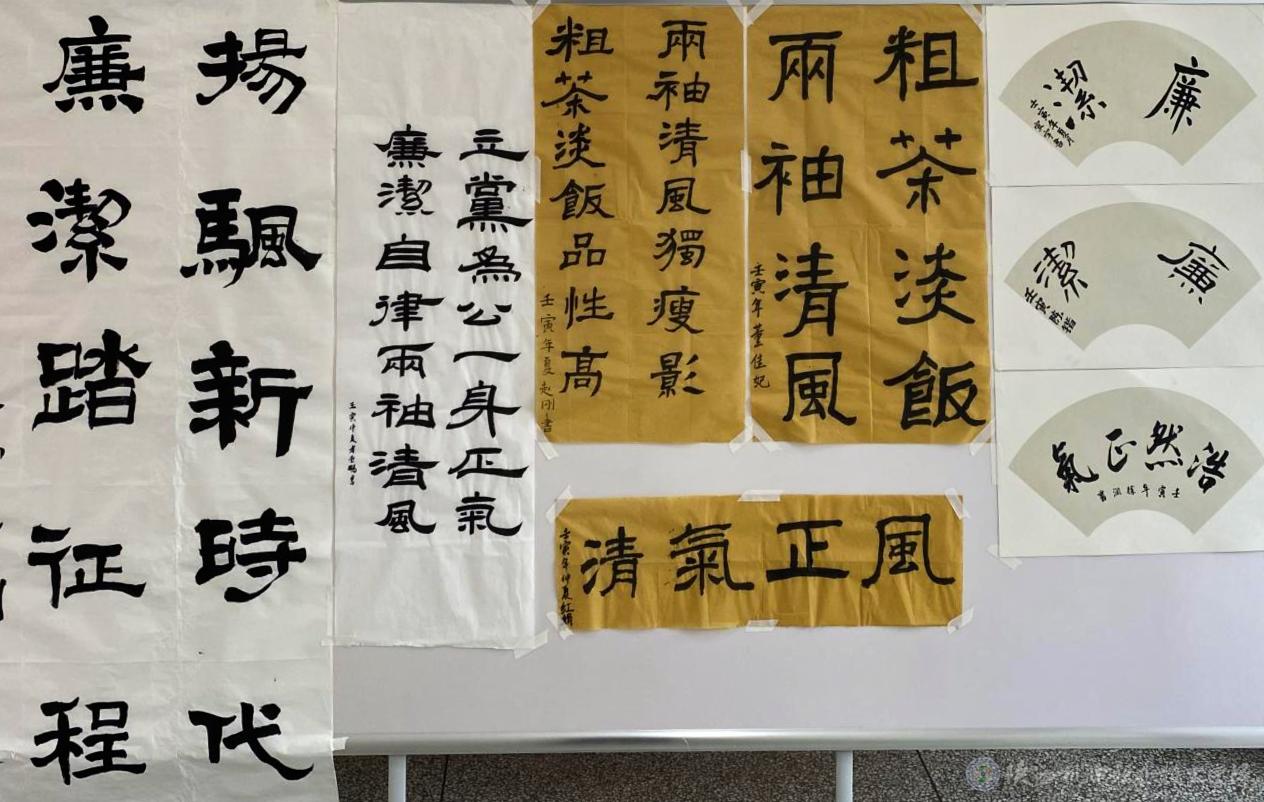 揚颿新時代
廉潔踏征程
立黨為公一身正氣
廉潔自律兩袖清風
壬寅仲夏
兩袖清風獨瘦影
粗茶淡飯品性高
壬寅年夏赵刚書
粗茶淡飯
兩袖清風
壬寅年董佳妃
風正氣清
壬寅年仲夏紅
廉潔
壬寅年
廉潔
壬寅陈楷
浩然正氣
壬寅年